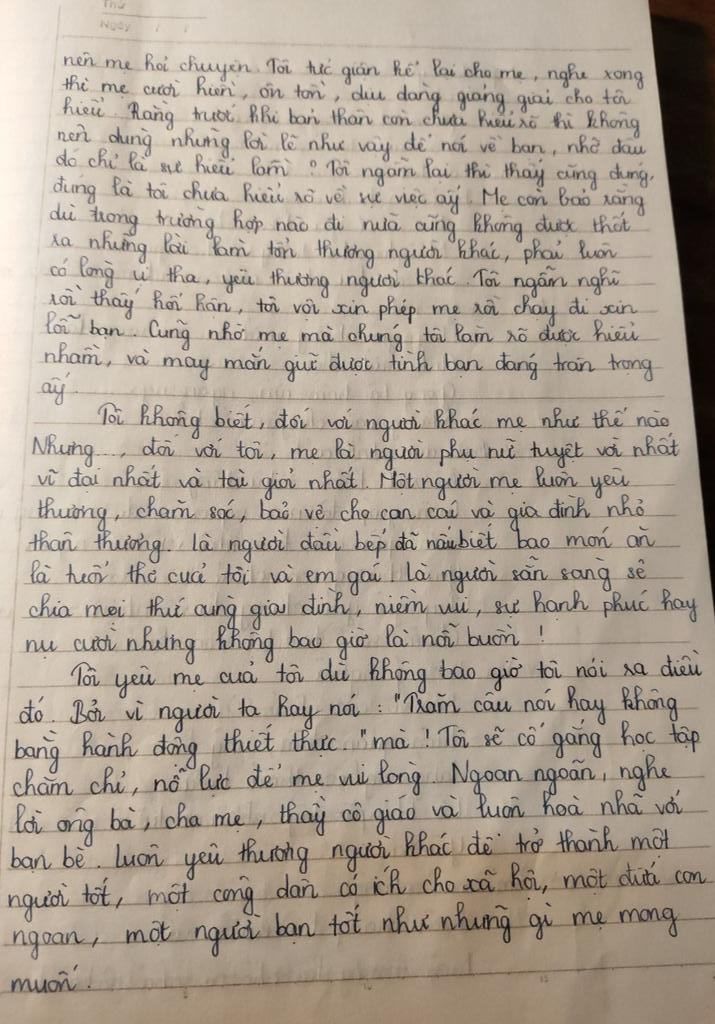 Thứ
Ngày / /
nên mẹ hỏi chuyện. Tôi tức giận kể lại cho mẹ, nghe xong
thì mẹ cười hiền, ôn tồn, dịu dàng giảng giải cho tôi
hiểu. Rằng trước khi bản thân con chưa hiểu rõ thì không
nên dùng những lời lẽ như vậy để nói về bạn, nhỡ đâu
đó chỉ là sự hiểu lầm? Tôi ngẫm lại thì thấy cũng đúng,
đúng là tôi chưa hiểu rõ về sự việc ấy. Mẹ còn bảo rằng
dù trong trường hợp nào đi nữa cũng không được thốt
ra những lời làm tổn thương người khác, phải luôn
có lòng vị tha, yêu thương người khác. Tôi ngẫm nghĩ
rồi thấy hối hận, tôi vội xin phép mẹ rồi chạy đi xin
lỗi bạn. Cũng nhờ mẹ mà chúng tôi làm rõ được hiểu
nhầm, và may mắn giữ được tình bạn đáng trân trọng
ấy.
Tôi không biết, đối với người khác mẹ như thế nào
Nhưng..., đối với tôi, mẹ là người phụ nữ tuyệt vời nhất
vĩ đại nhất và tài giỏi nhất. Một người mẹ luôn yêu
thương, chăm sóc, bảo vệ cho con cái và gia đình nhỏ
thân thương. là người đầu bếp đã nấu biết bao món ăn
là tuổi thơ của tôi và em gái. là người sẵn sàng sẻ
chia mọi thứ cùng gia đình, niềm vui, sự hạnh phúc hay
nụ cười nhưng không bao giờ là nỗi buồn!
Tôi yêu mẹ của tôi dù không bao giờ tôi nói ra điều
đó. Bởi vì người ta hay nói: "Trăm câu nói hay không
bằng hành động thiết thực." mà! Tôi sẽ cố gắng học tập
chăm chỉ, nỗ lực để mẹ vui lòng. Ngoan ngoãn, nghe
lời ông bà, cha mẹ, thầy cô giáo và luôn hoà nhã với
bạn bè. Luôn yêu thương người khác để trở thành một
người tốt, một công dân có ích cho xã hội, một đứa con
ngoan, một người bạn tốt như những gì mẹ mong
muốn.